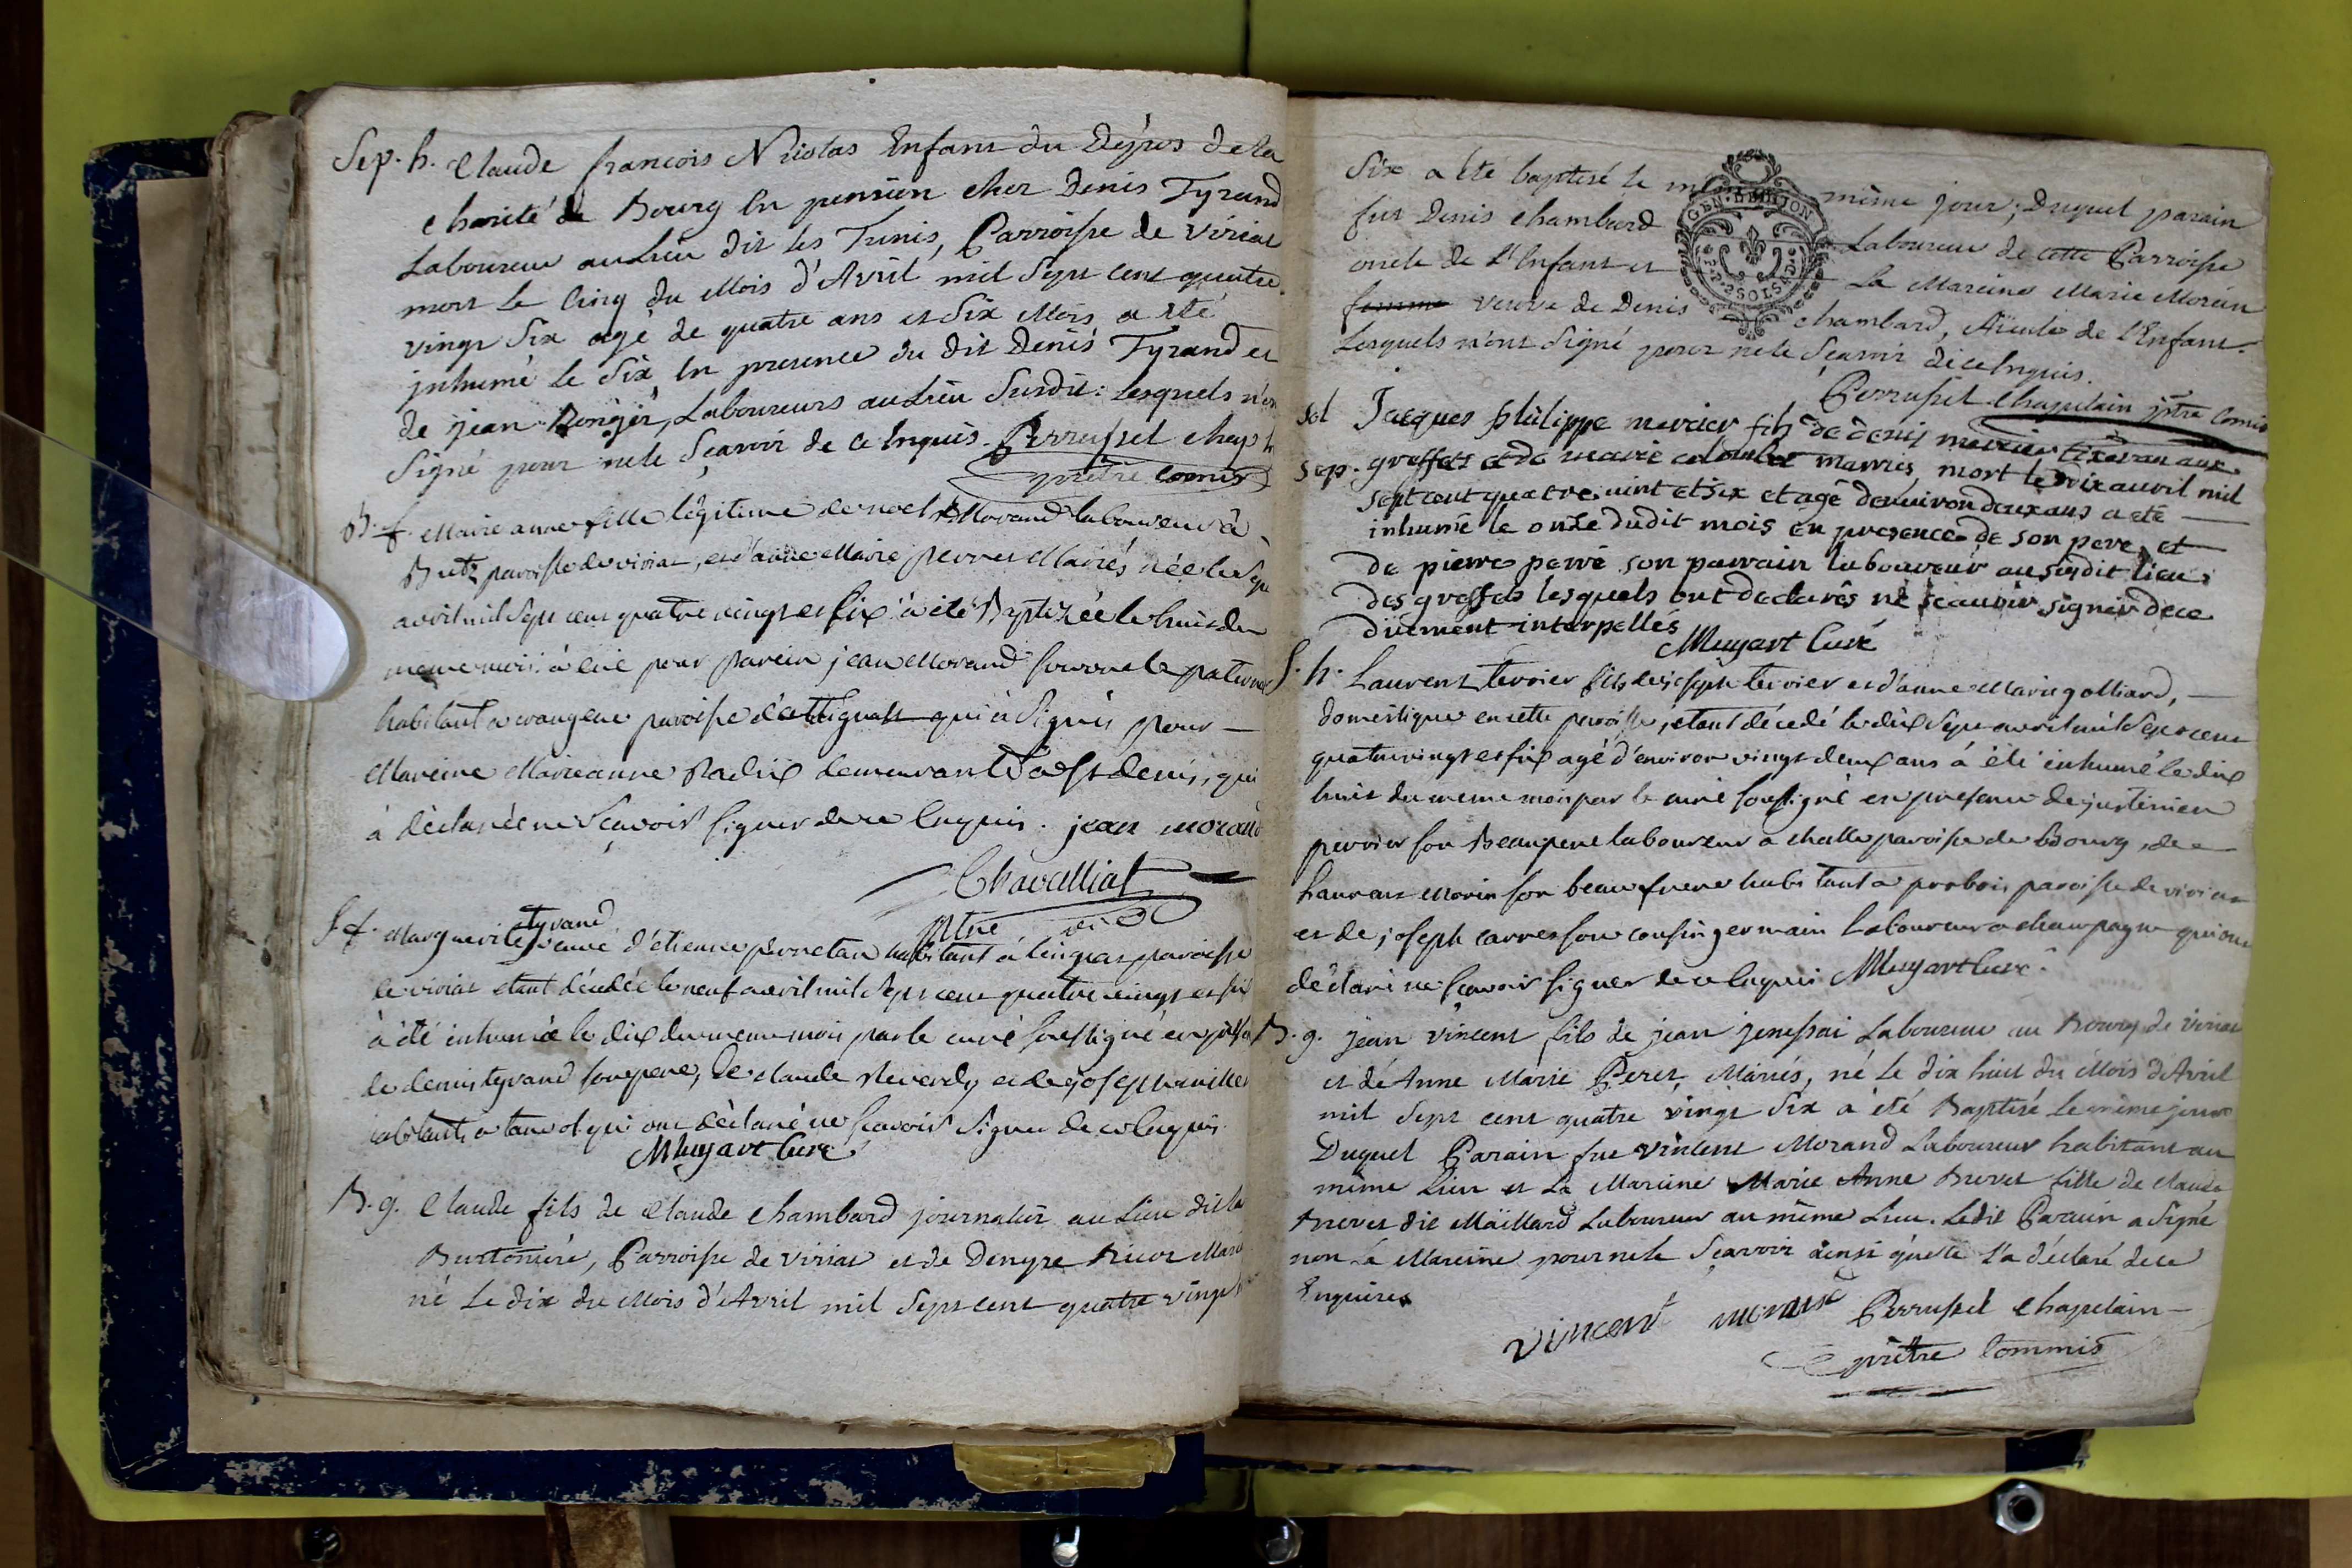 Sep. h. Claude francois Nicolas Enfant du Dépos de la
charité de Bourg en pension chez Denis Tyrand
Laboureur au Lieu dit les Tunis, Parroisse de Viriat
mort le Cinq du Mois d'Avril mil Sept cent quatre
vingt Six agé de quatre ans et Six Mois a été
inhumé le Six En presence du dit Denis Tyrand et
de jean Laboureurs au Lieu Susdit: Lesquels n'on
Signé pour ne le Sçavoir de ce Enquis. Perrussel chap
prêtre comis
B. f. Marie anne fille légitime de noel Morand laboureur à
paroisse de viriat, et d'anne Marie perret Mariés née le Sept
avril mil Sept cent quatre vingt et six a été Baptizée le huit du
meme mois à eue pour parein jean Morand son oncle paternel
habitant a paroisse d'attignat qui a signé pour
Mareine Marieanne demeurante a St denis, qui
à déclarée ne Sçavoir signer de ce Enquis. jean morand
Chavalliat
Ptre vic
S f. Marguerite tyrand veuve d'étienne perretan habitant à lingeas paroisse
de viriat etant décédée le neuf avril mil Sept cent quatre vingt et six
à été inhumée le dix du meme mois par le curé soussigné en présen
de denis tyrand son pere, de claude Reverdy et de joseph
habitants a qui ont déclaré ne Sçavoir Signer de ce Enquis.
Muyart Curé
B. g. Claude fils de Claude Chambard journalier au Lieu dit la
Burtoniére, Parroisse de Viriat et de Denyse Mari
né Le dix du Mois d'Avril mil Sept cent quatre vingt
Six a été baptisé le même jour; Duquel parain
fut Denis Chambard Laboureur de cette Parroisse
oncle de l'Enfant et La Mareine Marie Morein
femme veuve de Denis Chambard, Aïeule de l'Enfant.
Lesquels n'ont Signé pour ne le Sçavoir de ce Enquis.
Perrussel Chapelain ptre Comis
GEN. DE DIJON
2 SOLS
Sep. Jacques philippe mercier fils de denis mercier tixeran aux
greffets et de marie colomber marriés mort le dix avril mil
sept cent quatre vint et six et agé d'enuiron deux ans a été
inhumé le onze dudit mois en presence de son pere, et
de pierre perré son parrain laboureur au susdit lieu
des greffets lesquels ont declarés ne sçauoir signer de ce
düement interpellés Muyart Curé
S. h. Laurent tervier fils de joseph tervier et d'anne Marie golliard,
domestique en cette paroisse, etant décédé le dix Sept avril mil Sept cent
quatre vingt et six agé d'environ vingt deux ans à été inhumé le dix
huit du meme mois par le curé soussigné en presence de justinien
perrier son Beaupere laboureur a challe paroisse de Bourg, de
Laurent Morin son beaufrere habitant a paroisse de viriat
et de joseph carre son cousin germain Laboureur a champagne qui ont
déclaré ne Sçavoir signer de ce Enquis Muyart curé
B. g. Jean Vincent fils de Jean jenessai Laboureur au Bourg de Viriat
et de Anne Marie Peret, Mariés, né Le dix huit du Mois d'Avril
mil Sept cent quatre vingt Six a été Baptisé Le même jour
Duquel Parain fut Vincent Morand Laboureur habitant au
même Lieu et La Mareine Marie Anne Brevet fille de Claude
Brevet dit Maillard Laboureur au même Lieu. Ledit Parain a Signé
non la Mareine pour ne le Sçavoir ainsi qu'elle l'a déclaré de ce
Enquise
vincent morand Perrussel Chapelain
prêtre Commis